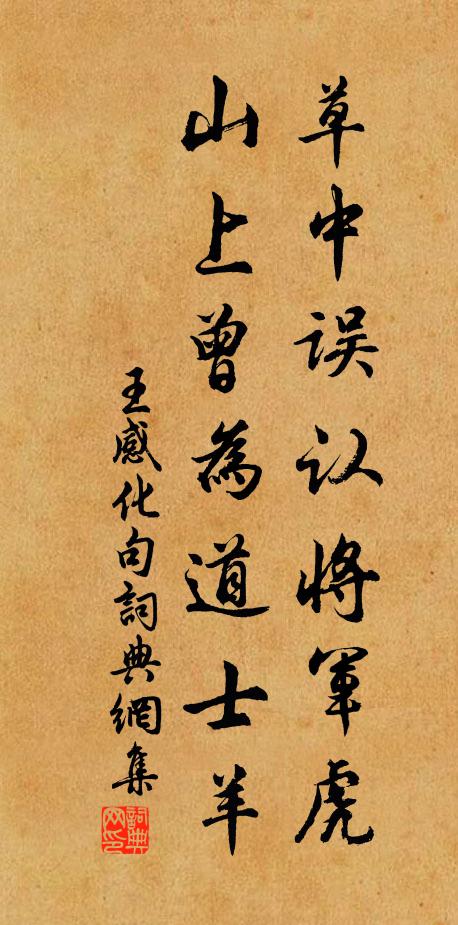 草中误认将军虎
山上曾為道士羊
王感化句詞典網集
詞典网印